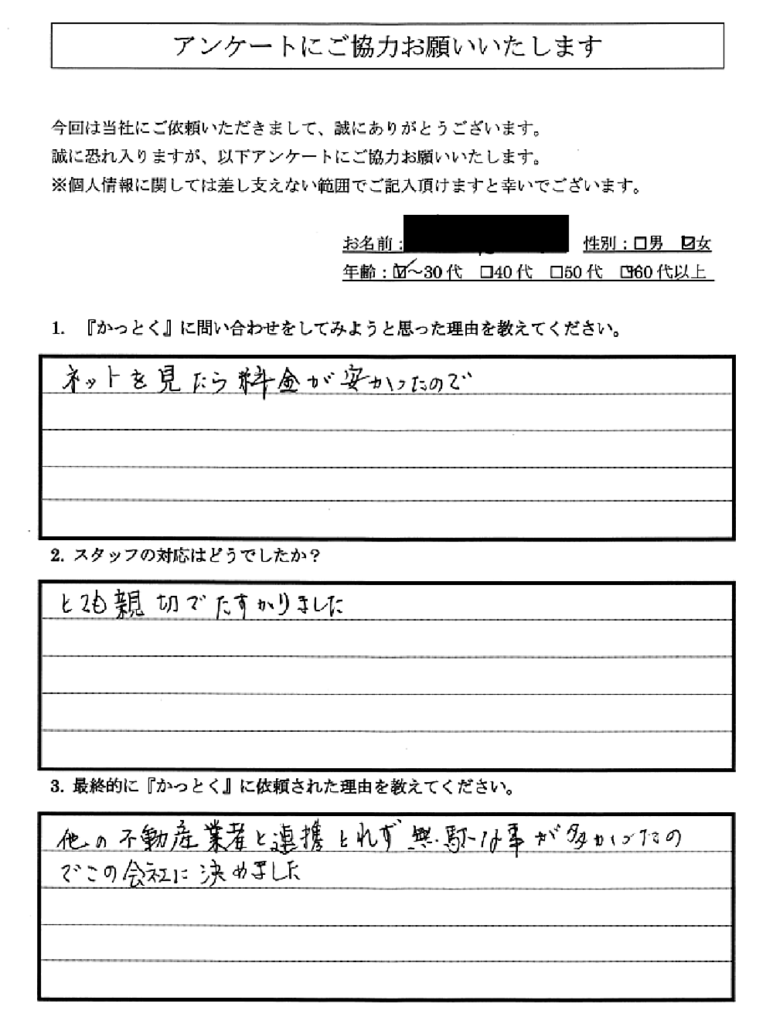 アンケートにご協力お願いいたします
今回は当社にご依頼いただきまして、誠にありがとうございます。
誠に恐れ入りますが、以下アンケートにご協力お願いいたします。
※個人情報に関しては差し支えない範囲でご記入頂けますと幸いでございます。
お名前： 性別：□男 ☑女
年齢：☑～30代 □40代 □50代 ☑60代以上
1. 『かっとく』に問い合わせをしてみようと思った理由を教えてください。
ネットを見たら料金が安かったので
2. スタッフの対応はどうでしたか？
とても親切でたすかりました
3. 最終的に『かっとく』に依頼された理由を教えてください。
他の不動産業者と連携とれず無駄な事が多かったの
でこの会社に決めました